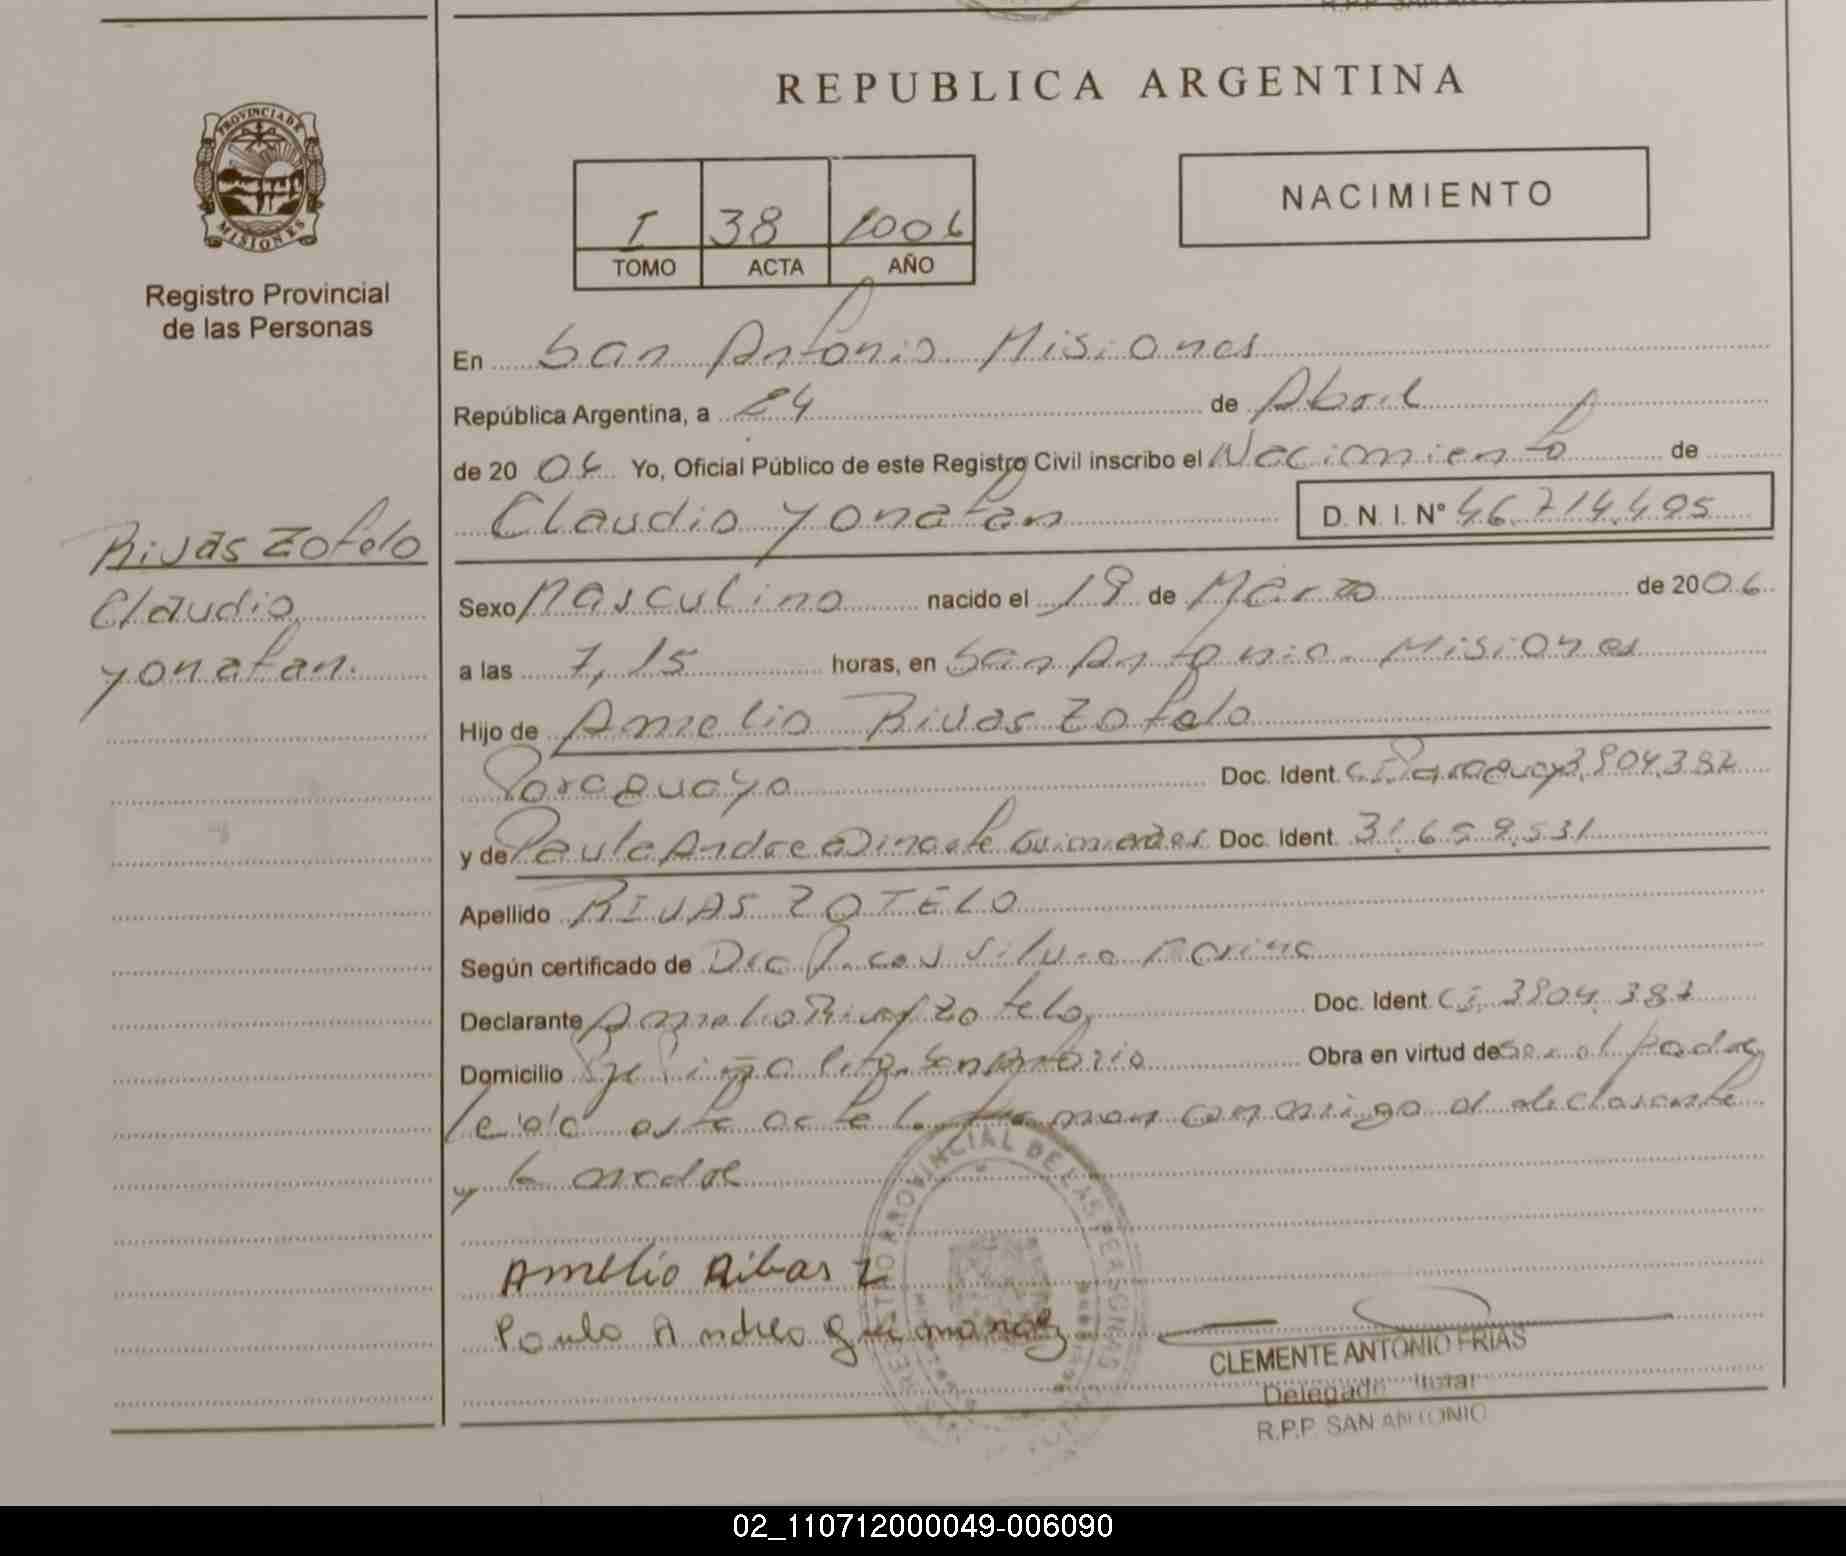 REPUBLICA ARGENTINA
PROVINCIA DE MISIONES
Registro Provincial
de las Personas
I 38 2006
TOMO ACTA AÑO
NACIMIENTO
En San Antonio Misiones
República Argentina, a 24 de Abril
de 20 06 Yo, Oficial Público de este Registro Civil inscribo el Nacimiento de
Claudio Yonatan D.N.I. Nº 46.714.495
Rivas Zotelo
Claudio
Yonatan.
Sexo Masculino nacido el 19 de Marzo de 2006
a las 7,15 horas, en San Antonio. Misiones
Hijo de Amelio Rivas Zotelo
Paraguayo Doc. Ident. C.I. Paraguay 3.904.387
y de Paula Andrea Guimaraes Doc. Ident. 31.659.531
Apellido RIVAS ZOTELO
Según certificado de Silvio
Declarante Amelio Rivas Zotelo Doc. Ident C.I. 3904.387
Domicilio San Antonio Obra en virtud de Ser el padre
leída esta acta la firman conmigo el declarante
y la madre
Amelio Ribas Z
Paula Andrea Guimaraez
REGISTRO PROVINCIAL DE LAS PERSONAS
CLEMENTE ANTONIO FRIAS
Delegado Titular
R.P.P. SAN ANTONIO
02_110712000049-006090